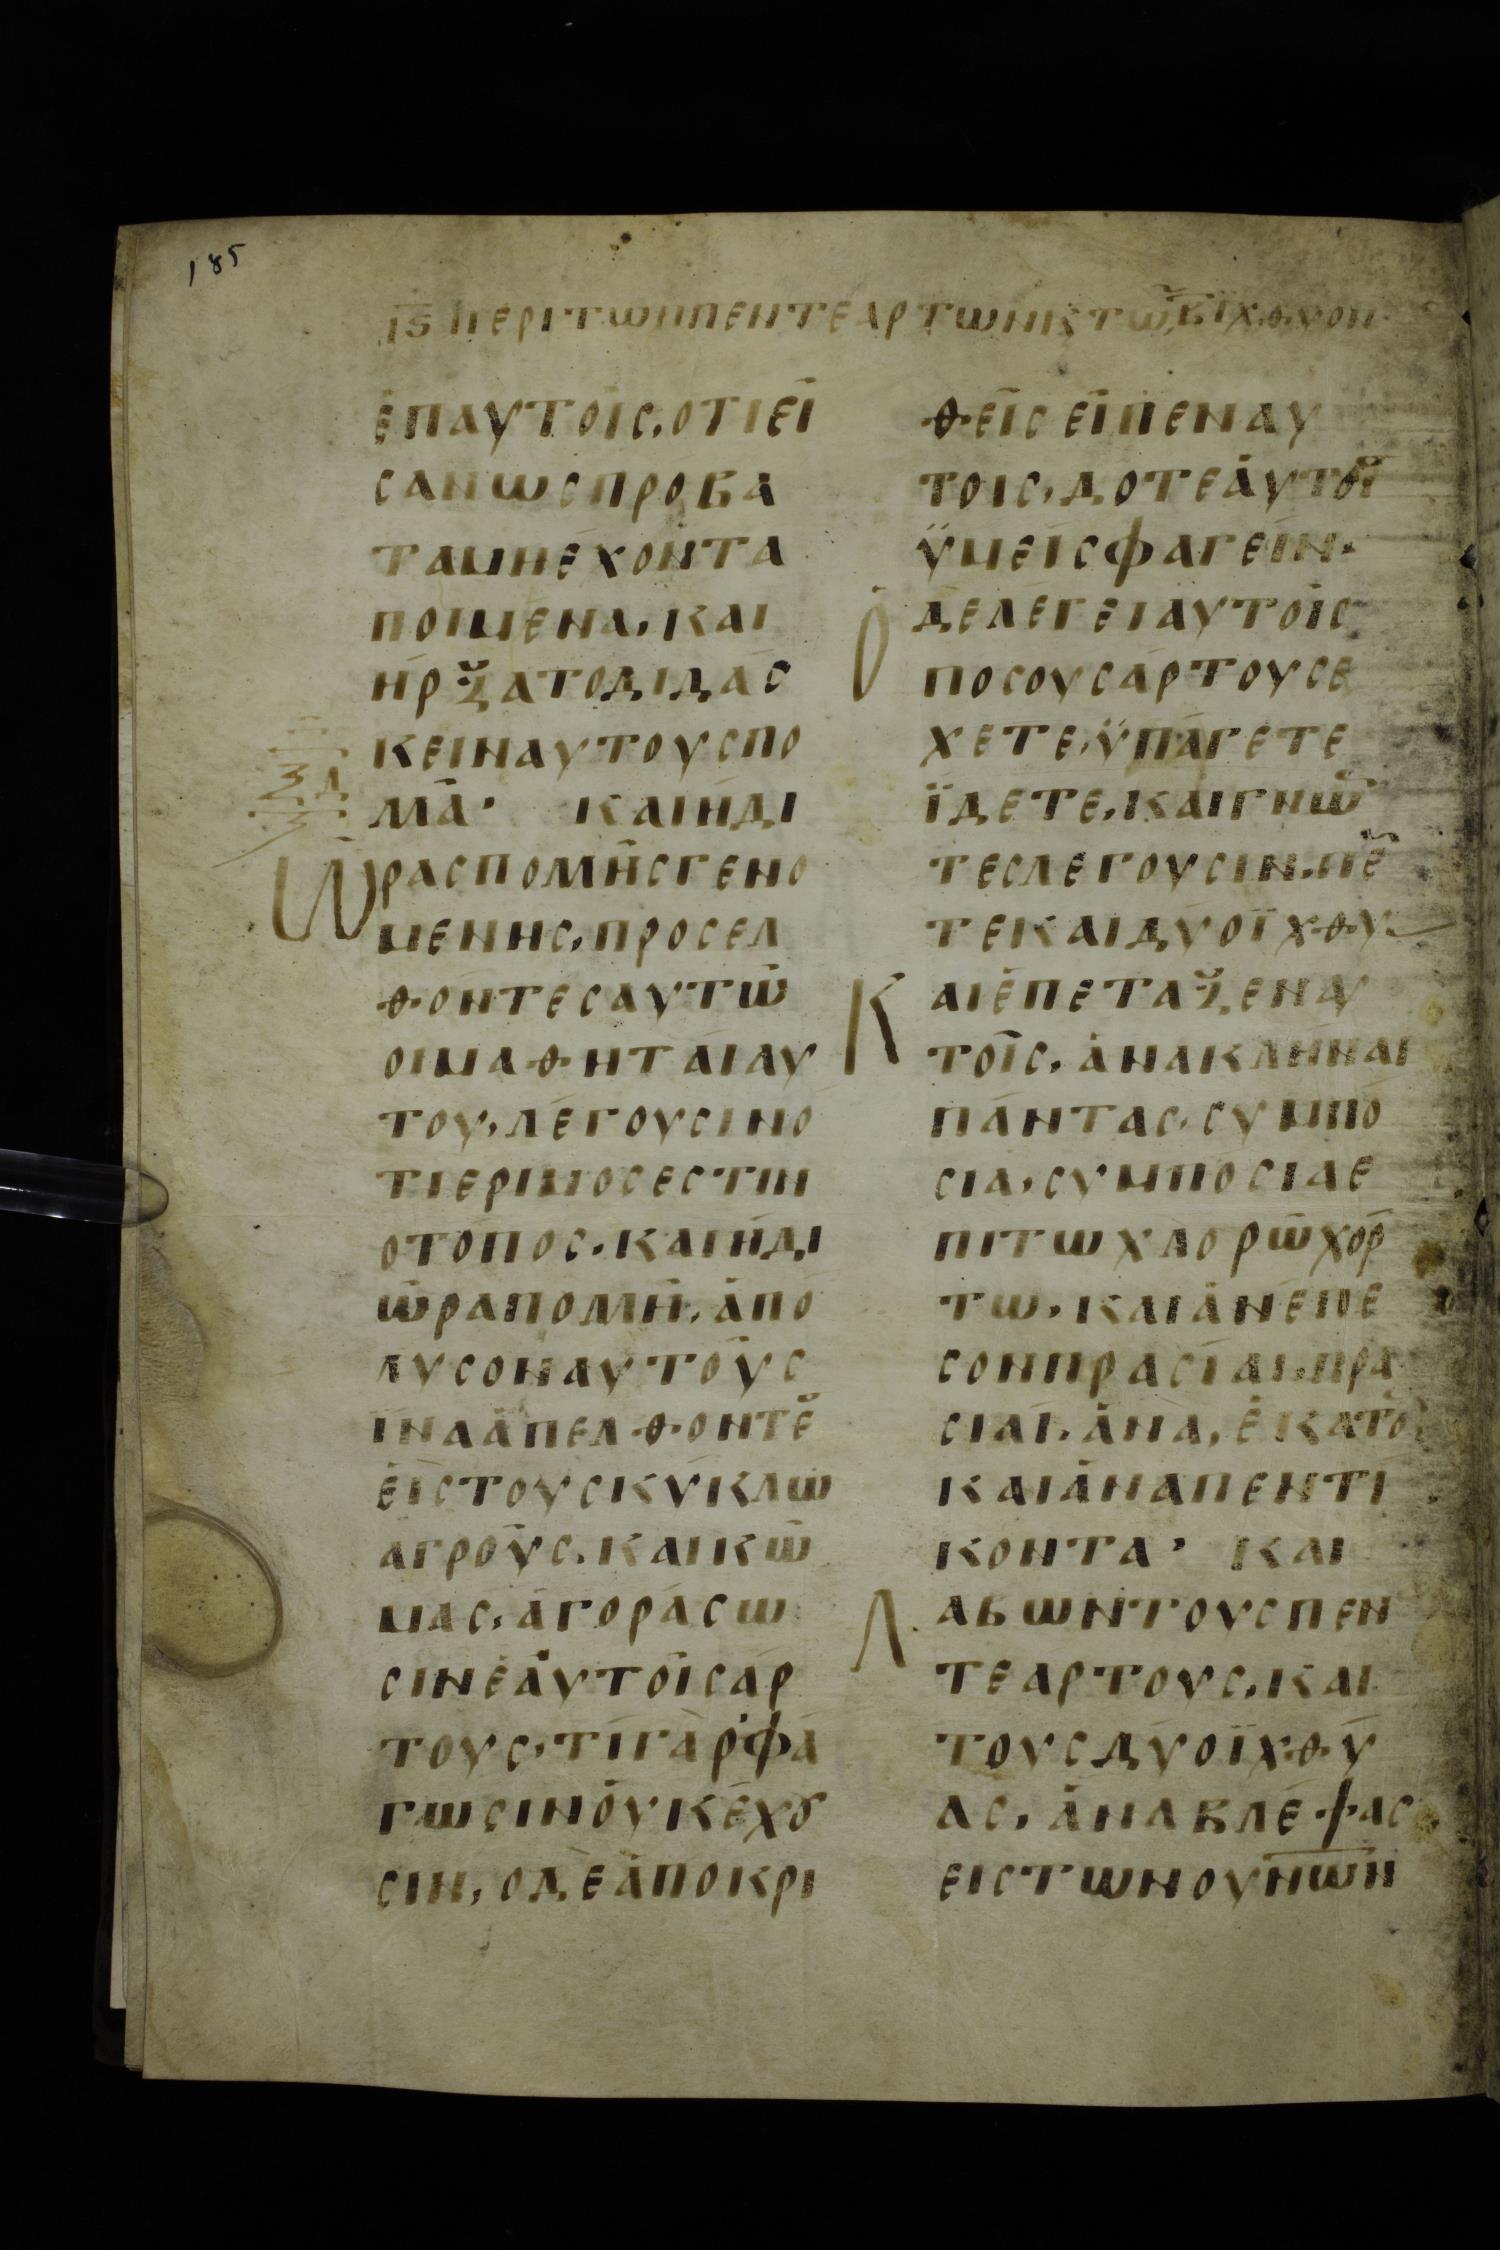 185
ΙϚ ΠΕΡΙ ΤΩΝ ΠΕΝΤΕ ΑΡΤΩΝ Κ ΤΩ Β ΙΧΘΥΟΝ
ἐΠΑΥΤΟΙΣ, ΟΤΙ ΕΙ
ΣΑΝ ΩΣ ΠΡΟΒΑ
ΤΑ ΜΗ ΕΧΟΝΤΑ
ΠΟΙΜΕΝΑ, ΚΑΙ
ΗΡΞΑΤΟ ΔΙΔΑΣ
ΚΕΙΝ ΑΥΤΟΥΣ ΠΟ
ΛΛΑ· ΚΑΙ ΗΔΙ
ΩΡΑΣ ΠΟΛΛΗΣ ΓΕΝΟ
ΜΕΝΗΣ, ΠΡΟΣΕΛ
ΘΟΝΤΕΣ ΑΥΤΩ
ΟΙ ΜΑΘΗΤΑΙ ΑΥ
ΤΟΥ, ΛΕΓΟΥΣΙΝ Ο
ΤΙ ΕΡΙΜΟΣ ΕΣΤΙΝ
Ο ΤΟΠΟΣ, ΚΑΙ ΗΔΙ
ΩΡΑ ΠΟΛΛΗ, ΑΠΟ
ΛΥΣΟΝ ΑΥΤΟΥΣ
ΙΝΑ ΑΠΕΛΘΟΝΤΕ
ΕΙΣ ΤΟΥΣ ΚΥΚΛΩ
ΑΓΡΟΥΣ, ΚΑΙ ΚΩ
ΜΑΣ, ΑΓΟΡΑΣΩ
ΣΙΝ ΕΑΥΤΟΙΣ ΑΡ
ΤΟΥΣ, ΤΙ ΓΑΡ ΦΑ
ΓΩΣΙΝ ΟΥΚ ΕΧȣ
ΣΙΝ, Ο ΔΕ ΑΠΟΚΡΙ
ΘΕΙΣ ΕΙΠΕΝ ΑΥ
ΤΟΙΣ, ΔΟΤΕ ΑΥΤΟΙ
ΫΜΕΙΣ ΦΑΓΕΙΝ·
Ο ΔΕ ΛΕΓΕΙ ΑΥΤΟΙΣ
ΠΟΣΟΥΣ ΑΡΤΟΥΣ Ε
ΧΕΤΕ, ΫΠΑΓΕΤΕ
ΪΔΕΤΕ, ΚΑΙ ΓΝΩ
ΤΕΣ ΛΕΓΟΥΣΙΝ, ΠΕ
ΤΕ ΚΑΙ ΔΥΟ ΪΧΘΥ
ΚΑΙ ΕΠΕΤΑΞΕΝ ΑΥ
ΤΟΙΣ, ΑΝΑΚΛΗΝΑΙ
ΠΑΝΤΑΣ, ΣΥΜΠΟ
ΣΙΑ, ΣΥΜΠΟΣΙΑ Ε
ΠΙ ΤΩ ΧΛΟΡΩ ΧΟΡ
ΤΩ, ΚΑΙ ΑΝΕΠΕ
ΣΟΝ ΠΡΑΣΙΑΙ, ΠΡΑ
ΣΙΑΙ, ΑΝΑ, ΕΚΑΤΟ
ΚΑΙ ΑΝΑ ΠΕΝΤΙ
ΚΟΝΤΑ· ΚΑΙ
ΛΑΒΩΝ ΤΟΥΣ ΠΕΝ
ΤΕ ΑΡΤΟΥΣ, ΚΑΙ
ΤΟΥΣ ΔΥΟ ΪΧΘΥ
ΑΣ, ΑΝΑΒΛΕΨΑΣ
ΕΙΣ ΤΩΝ ΟΥΝΩΝ